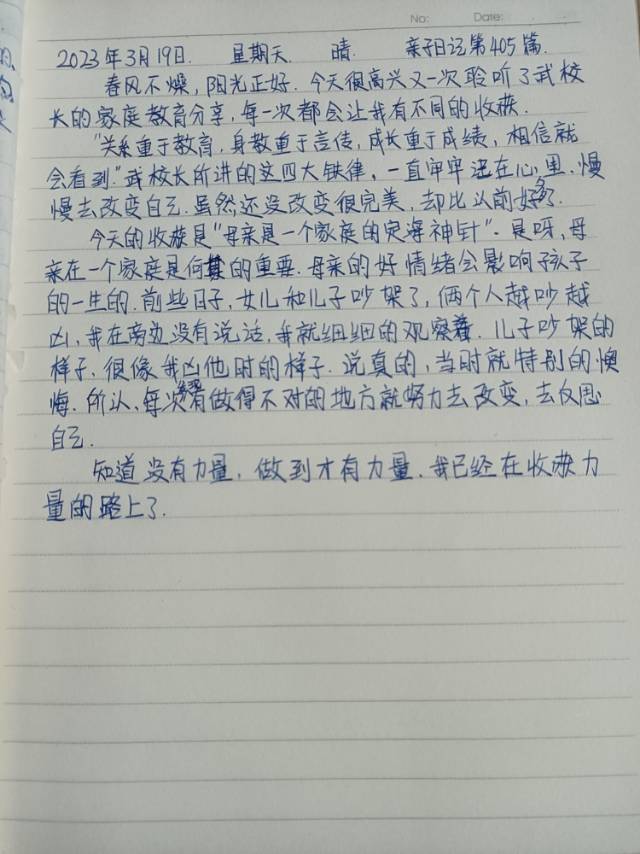 No: Date:
2023年3月19日. 星期天. 晴. 亲子日记第405篇.
春风不燥,阳光正好.今天很高兴又一次聆听了武校
长的家庭教育分享,每一次都会让我有不同的收获.
"关系重于教育,身教重于言传,成长重于成绩,相信就
会看到."武校长所讲的这四大铁律,一直牢牢记在心里.慢
慢去改变自己.虽然还没改变很完美,却比以前好多了.
今天的收获是"母亲是一个家庭的定海神针".是呀,母
亲在一个家庭是何其的重要.母亲的好情绪会影响孩子
的一生的.前些日子,女儿和儿子吵架了,俩个人越吵越
凶,我在旁边没有说话,我就细细的观察着.儿子吵架的
样子,很像我凶他时的样子.说真的,当时就特别的懊
悔.所以,每次有做得不对的地方就努力去改变,去反思
自己.
知道没有力量,做到才有力量.我已经在收获力
量的路上了.